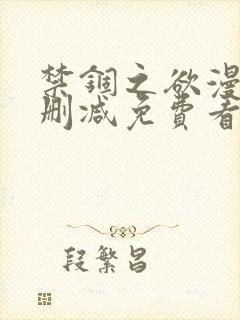 禁锢之欲漫
删减免费看
段繁昌